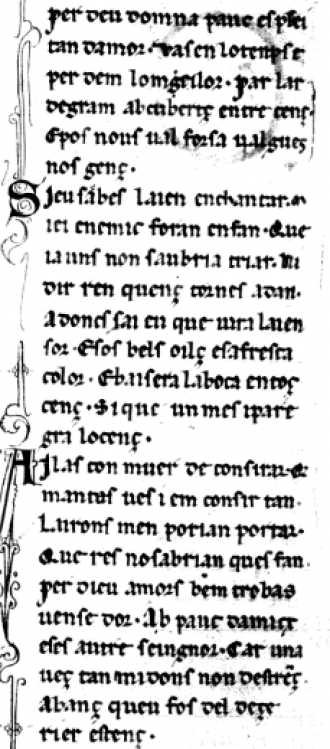 per deu domna pauc esplei
tan damor · Vasen lotenps e
per dem lomgeilor · par lar
degram abcubertç entre cenç·
Epos nous ual forsa ualgues
nos genç·
Sieu sabes laien enchantar· m
iei enemic foran enfan · Que
ia uns non saubria triar· Ni
dir ren quenç tornes adan·
Adoncs sai eu que uira laien
sor · Esos bels oilç esafresca
color · Ebaisera laboca entoç
cenç · Si que un mes ipare
gra locenç ·
Ailas con muer de consirar· Q
mantas ues i em consir tan·
Lairons men porian portar·
Que res nosabrian ques fan·
per dieu amors bem trobas
uense dor · Ab pauc damicç
eses autre seingnor· Car una
ueç tan midons non destreç·
Abanç queu fos del deçe
rier estenç ·